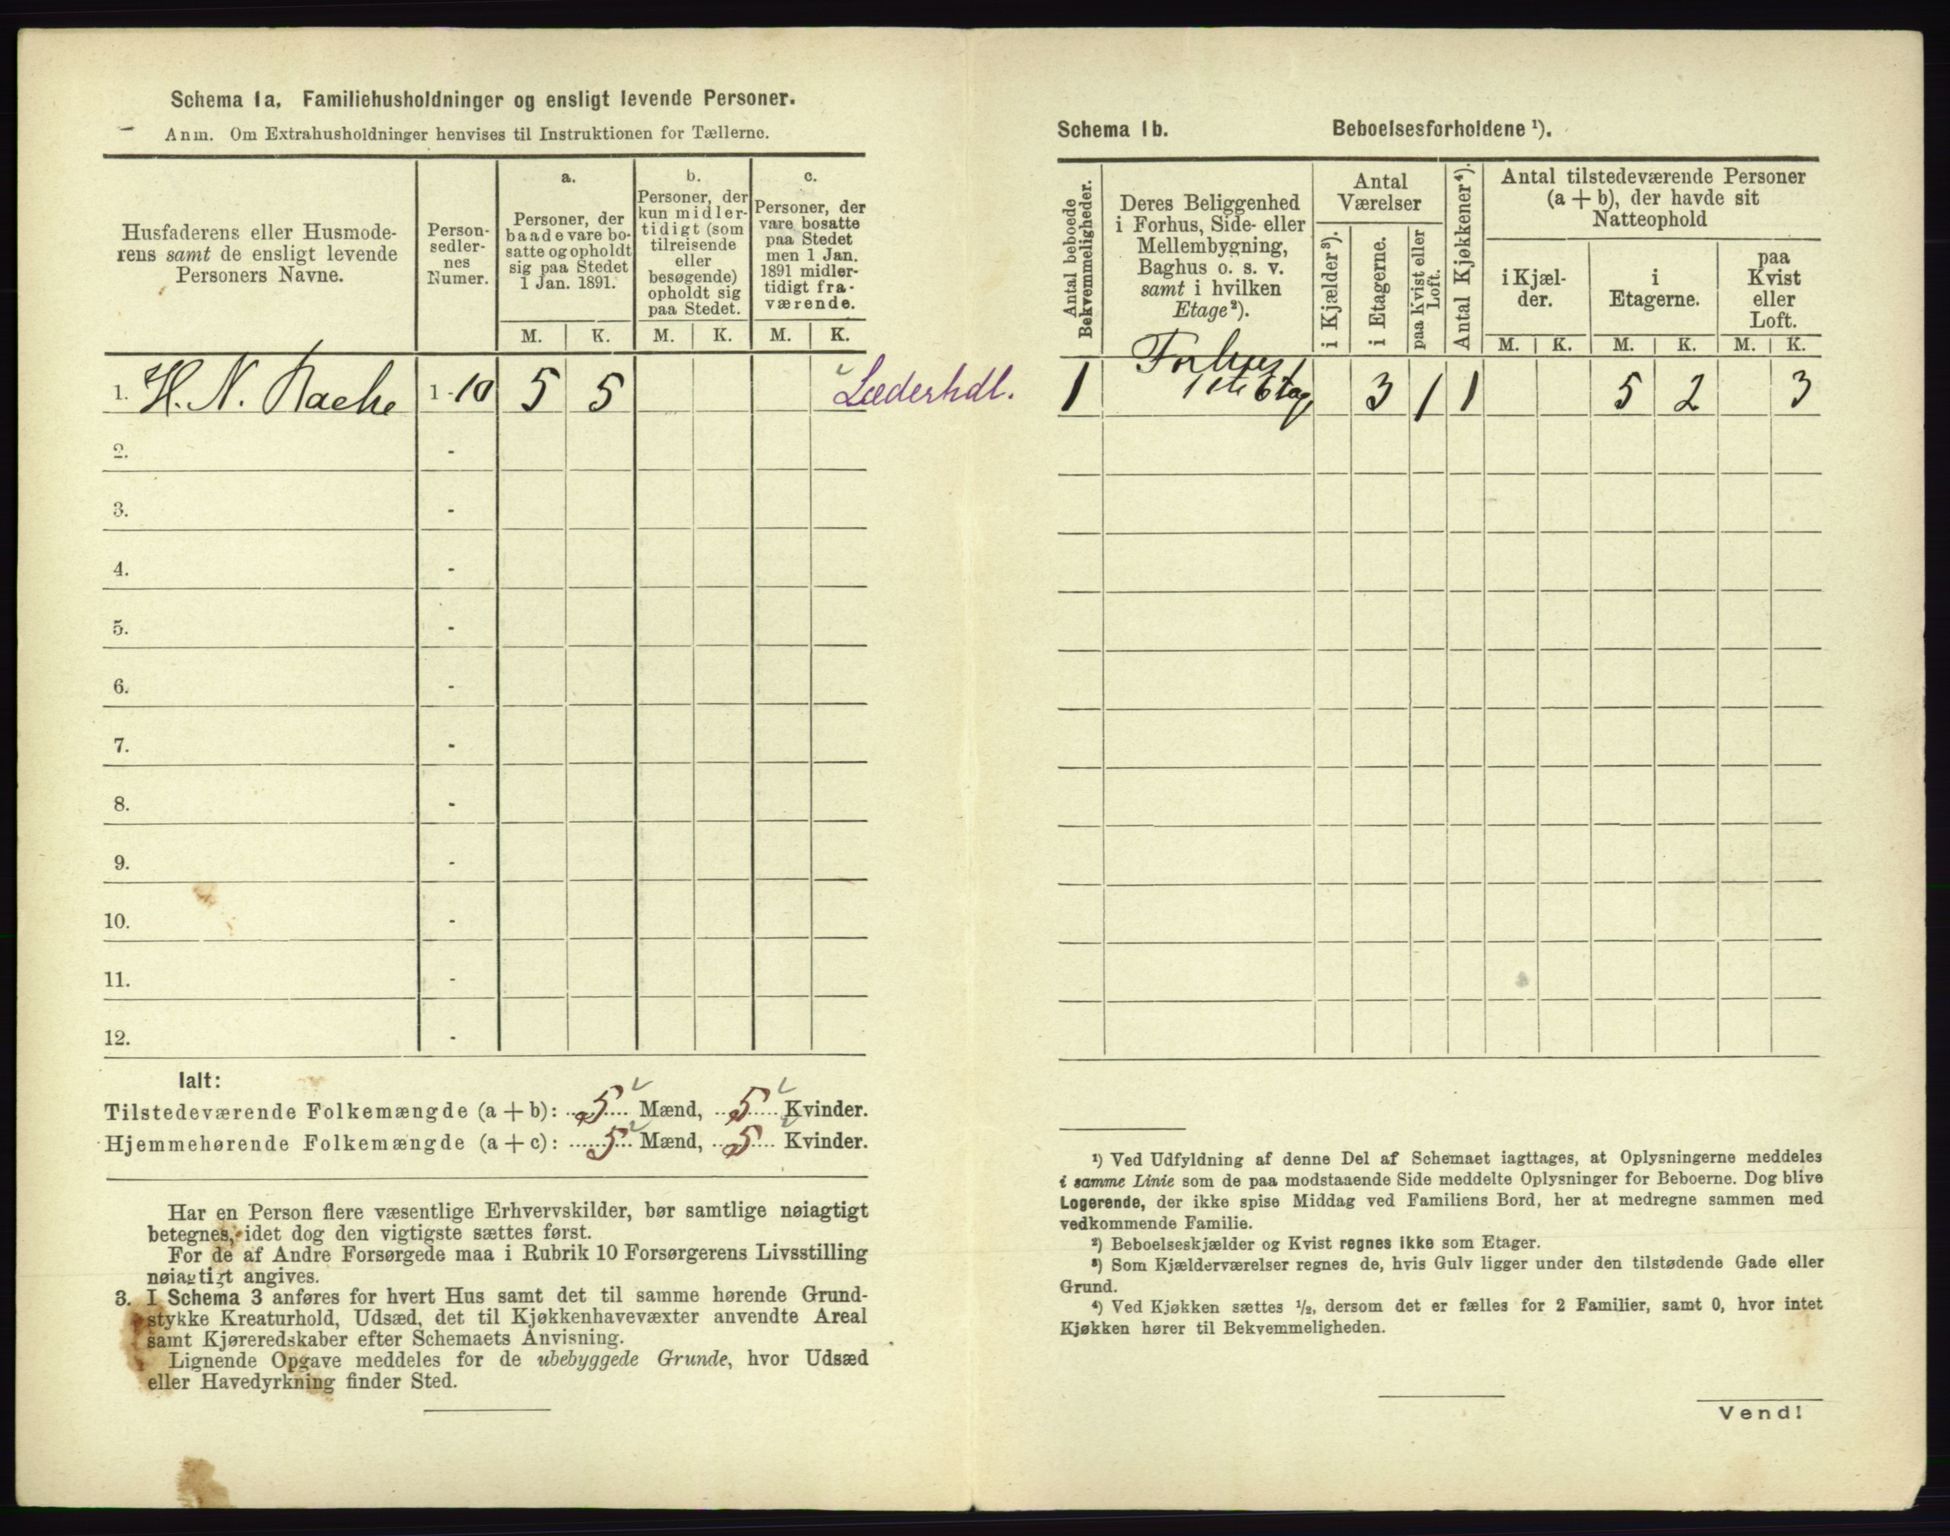 Schema 1a. Familiehusholdninger og ensligt levende Personer.
Anm. Om Extrahusholdninger henvises til Instruktionen for Tællerne.
Husfaderens eller Husmode-
rens samt de ensligt levende
Personers Navne.
Person-
sedler-
nes
Numer.
a.
Personer, der
baade vare bo-
satte og opholdt
sig paa Stedet
1 Jan. 1891.
b.
Personer, der
kun midler-
tidigt (som
tilreisende
eller
besøgende)
opholdt sig
paa Stedet.
c.
Personer, der
vare bosatte
paa Stedet
men 1 Jan.
1891 midler-
tidigt fra-
værende.
M. K. M. K. M. K.
1. H. N. Rache 1 - 10 5 5 Læderhdl.
2. -
3. -
4. -
5. -
6. -
7. -
8. -
9. -
10. -
11. -
12. -
Ialt:
Tilstedeværende Folkemængde (a + b): 5 Mænd, 5 Kvinder.
Hjemmehørende Folkemængde (a + c): 5 Mænd, 5 Kvinder.
Har en Person flere væsentlige Erhvervskilder, bør samtlige nøiagtigt
betegnes, idet dog den vigtigste sættes først.
For de af Andre Forsørgede maa i Rubrik 10 Forsørgerens Livsstilling
nøiagtigt angives.
3. I Schema 3 anføres for hvert Hus samt det til samme hørende Grund-
stykke Kreaturhold, Udsæd, det til Kjøkkenhavevæxter anvendte Areal
samt Kjøreredskaber efter Schemaets Anvisning.
Lignende Opgave meddeles for de ubebyggede Grunde, hvor Udsæd
eller Havedyrkning finder Sted.
Schema 1b. Beboelsesforholdene ¹).
Antal beboede
Bekvemmeligheder.
Deres Beliggenhed
i Forhus, Side- eller
Mellembygning,
Baghus o. s. v.
samt i hvilken
Etage²).
Antal
Værelser
i Kjælder³).
i Etagerne.
paa Kvist eller
Loft.
Antal Kjøkkener⁴).
Antal tilstedeværende Personer
(a + b), der havde sit
Natteophold
i Kjæl-
der.
i
Etagerne.
paa
Kvist
eller
Loft.
M. K. M. K. M. K.
Forhus
1 1ste Etag 3 1 1 5 2 3
¹) Ved Udfyldning af denne Del af Schemaet iagttages, at Oplysningerne meddeles
i samme Linie som de paa modstaaende Side meddelte Oplysninger for Beboerne. Dog blive
Logerende, der ikke spise Middag ved Familiens Bord, her at medregne sammen med
vedkommende Familie.
²) Beboelseskjælder og Kvist regnes ikke som Etager.
³) Som Kjælderværelser regnes de, hvis Gulv ligger under den tilstødende Gade eller
Grund.
⁴) Ved Kjøkken sættes ½, dersom det er fælles for 2 Familier, samt 0, hvor intet
Kjøkken hører til Bekvemmeligheden.
Vend!